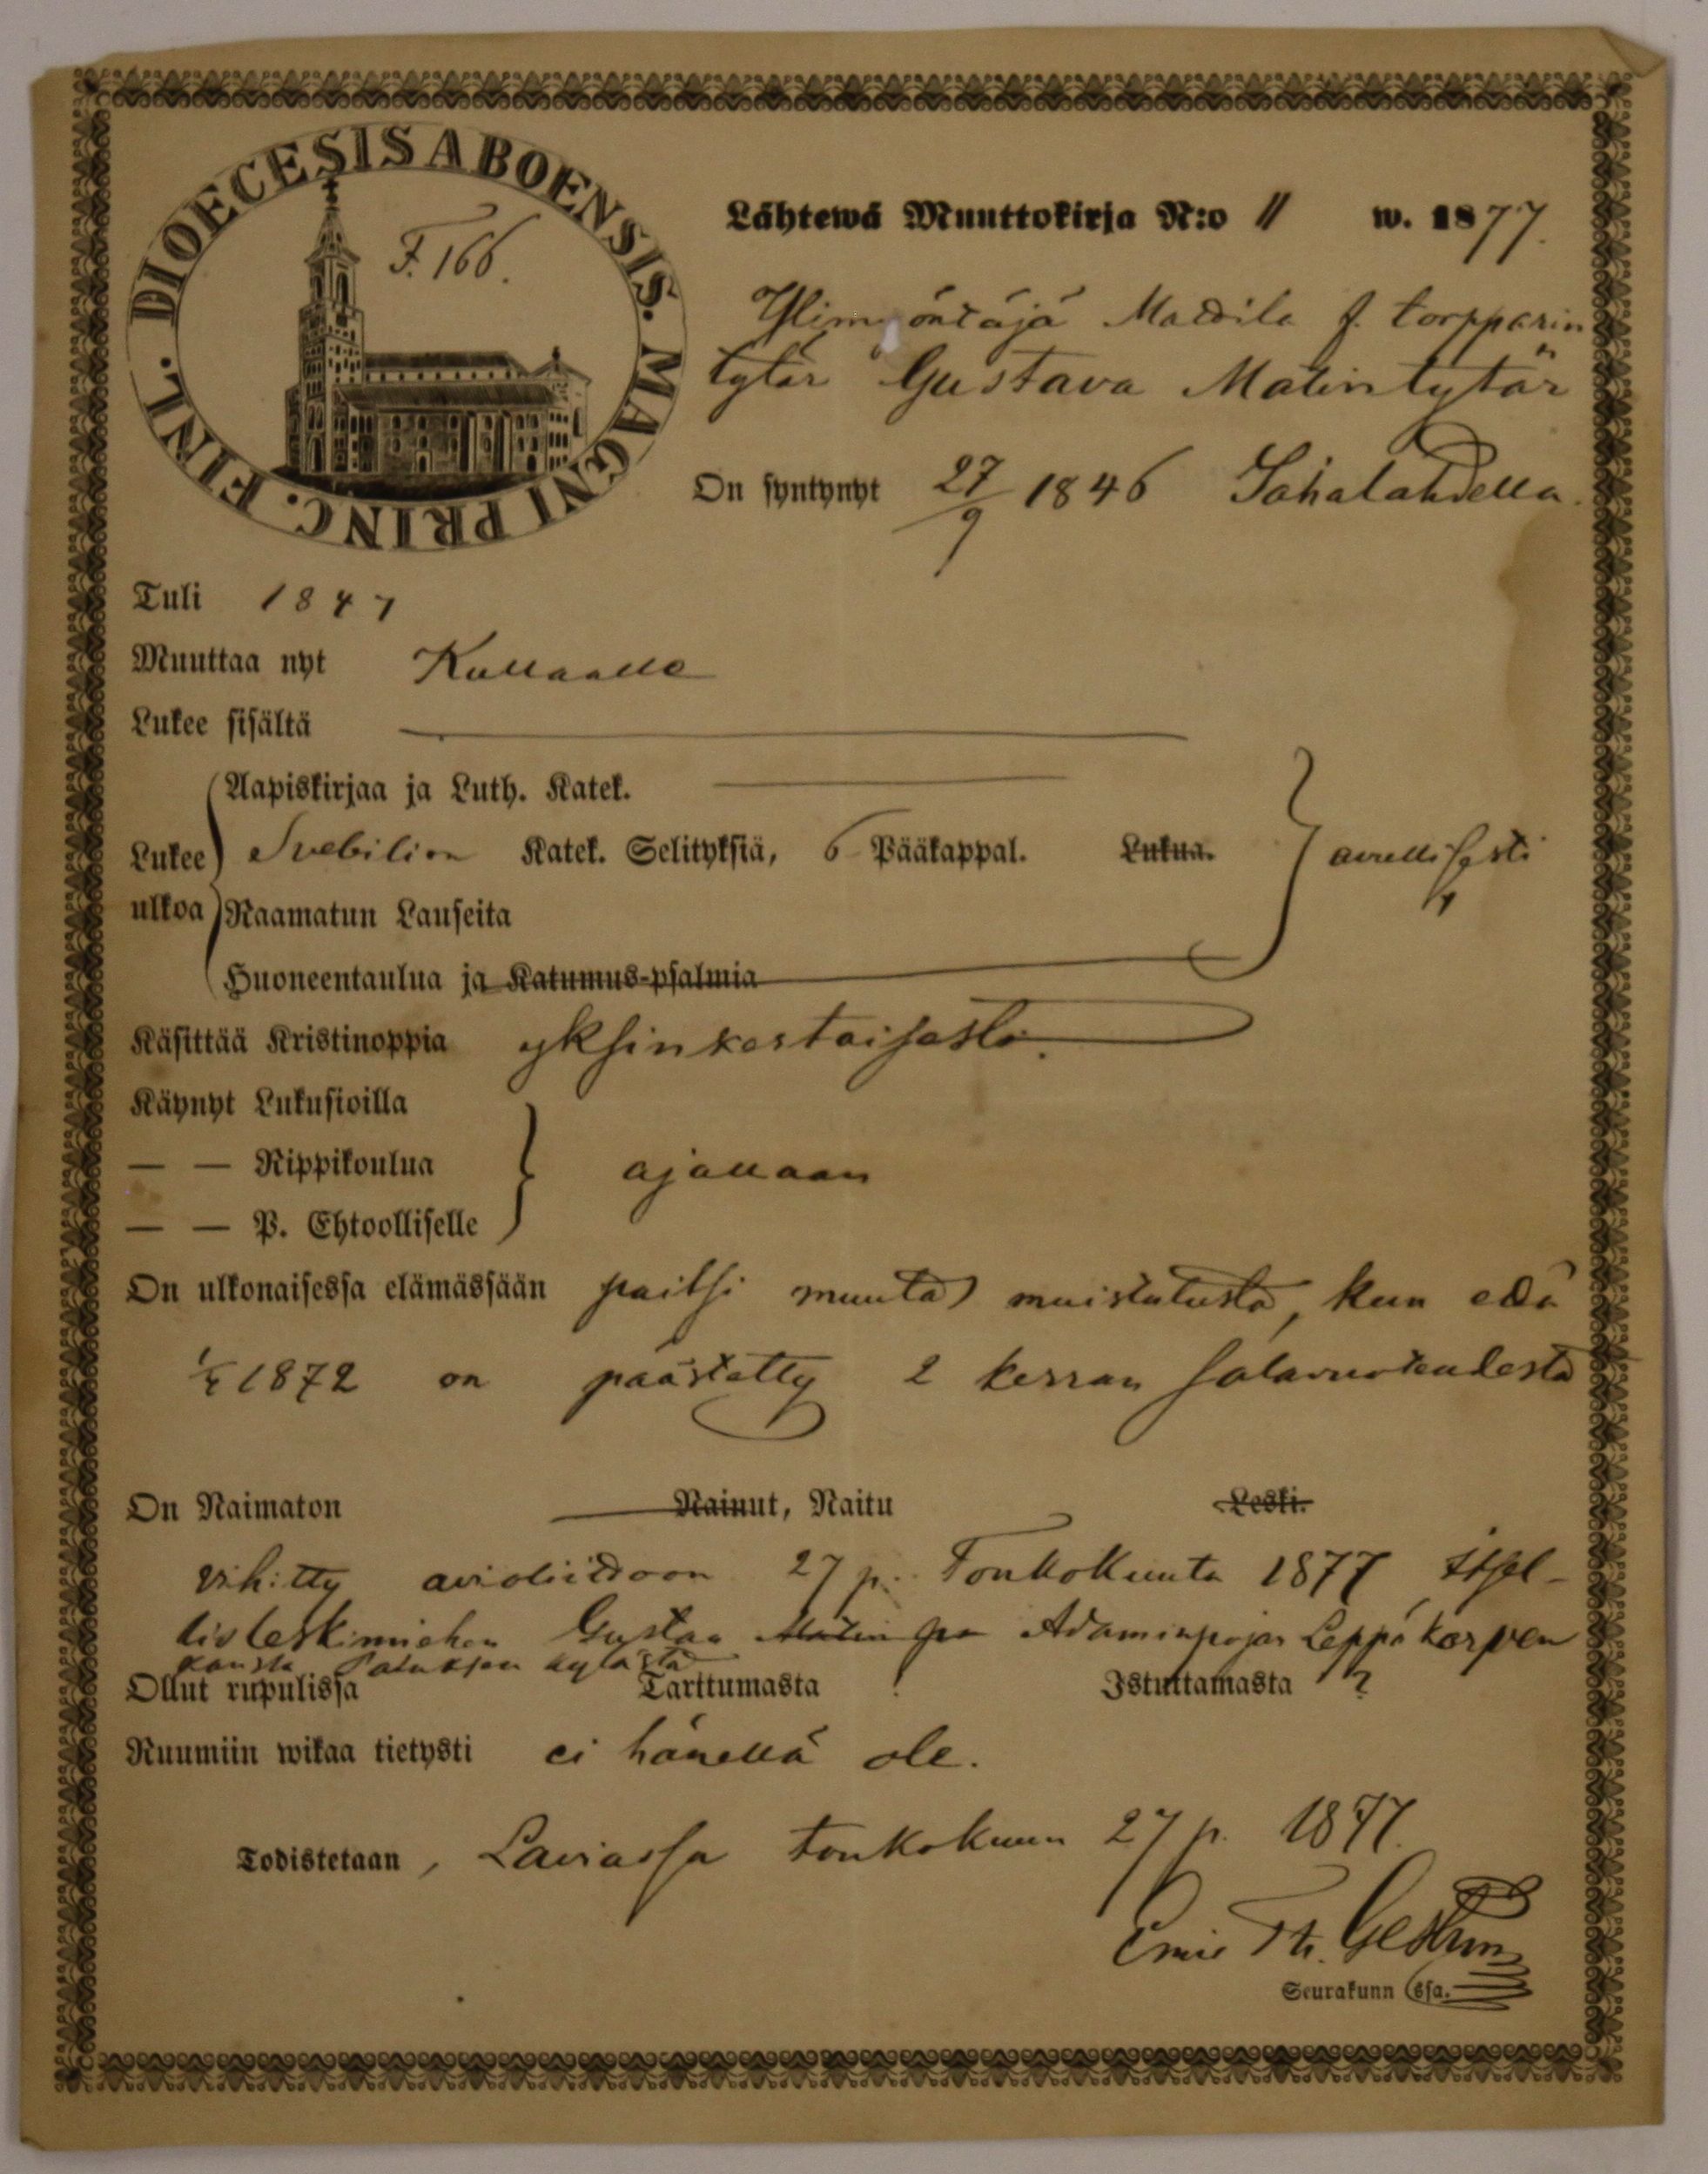 DIOECESIS ABOENSIS. MAGNI PRINC. FINL.
F. 166.
Lähtewä Muuttokirja N:o 11 w. 1877.
torpparin
tytär Gustava Matintytär
On syntynyt 27/9 1846 Sahalahdella.
Tuli 1847
Muuttaa nyt Kullaalle
Lukee sisältä
Aapiskirjaa ja Luth. Katek.
Lukee Svebilion Katek. Selityksiä, 6 Pääkappal. Lukua. awullisesti
ulkoa Raamatun Lauseita
Huoneentaulua ja Katumus-psalmia
Käsittää Kristinoppia yksinkertaisesti.
Käynyt Lukusioilla
— — Rippikoulua ajallaan
— — P. Ehtoolliselle
On ulkonaisessa elämässään paitsi muuta muistutusta, kun että
1872 on päästetty 2 kerran salavuoteudesta
On Naimaton Nainut, Naitu Leski.
vihitty avioliittoon 27 p. Toukokuuta 1877 itsel-
lisleskimiehen Gustaa Matin po Adaminpojan Leppäkorven
kanssa kylästä
Ollut rupulissa Tarttumasta ? Istuttamasta ?
Ruumiin wikaa tietysti ei hänellä ole.
Todistetaan, Laviassa toukokuun 27 p. 1877.
Th.
Seurakunn ssa.